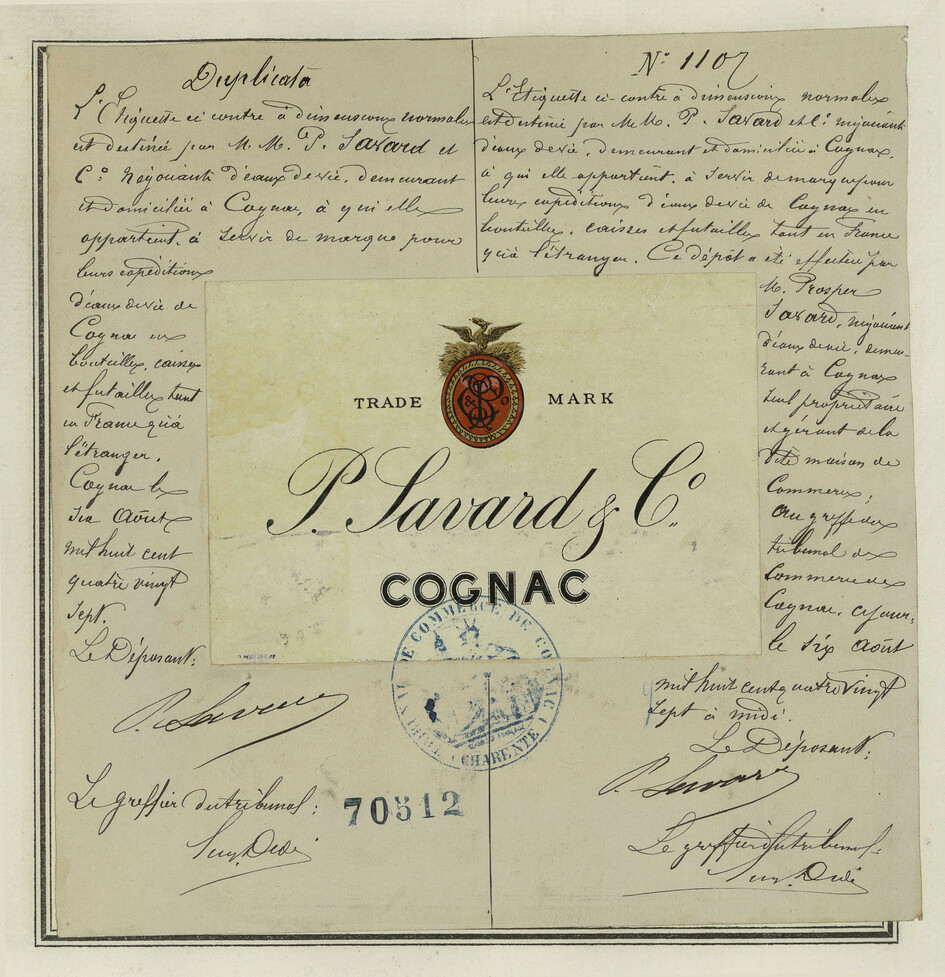 Duplicata
L'Etiquette ci contre à dimensions normales
est destinée par M. M. P. Savard et
Cº Négociants d'eaux de vie, demeurant
et domiciliée à Cognac, à qui elle
appartient, à servir de marque pour
leurs expéditions
d'eaux de vie de
Cognac en
bouteilles, caisses
et futailles tant
en France qu'à
l'étranger.
Cognac le
six Août
mil huit cent
quatre vingt
sept.
Le Déposant:
P. Savard
Le greffier du tribunal:
Nº 1107
L'Etiquette ci-contre à dimensions normales
est destinée par M. M. P. Savard et Cº négociants
d'eaux de vie, demeurant et domiciliée à Cognac,
à qui elle appartient, à servir de marque pour
leurs expéditions d'eaux de vie de Cognac en
bouteilles, caisses et futailles tant en France
qu'à l'étranger. Ce dépôt a été effectué par
M. Prosper
Savard, négociant
d'eaux de vie, demeu-
rant à Cognac
seul propriétaire
et gérant de la
dite maison de
Commerce,
au greffe du
tribunal de
Commerce de
Cognac, ce jour-
le six Août
mil huit cent quatre vingt
sept à midi.
Le Déposant:
P. Savard
Le greffier du tribunal:
TRADE MARK
P. Savard & Cº
COGNAC
TRIBUNAL DE COMMERCE DE COGNAC
CHARENTE
70512